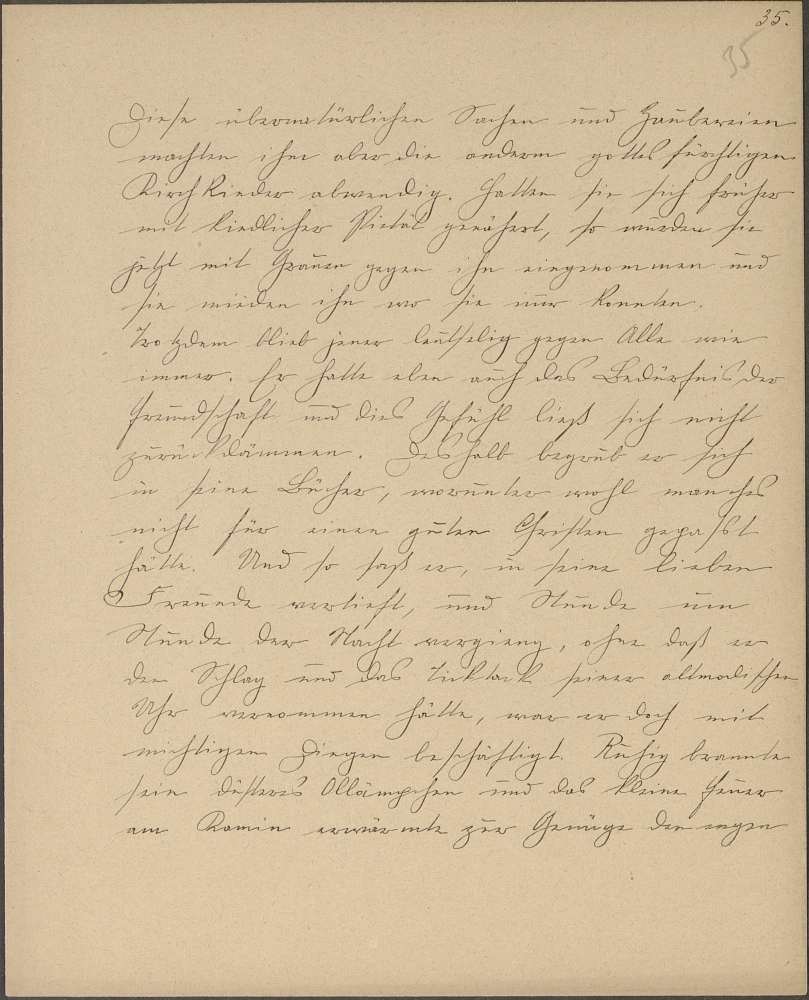 35.
35
Diese übernatürlichen Sachen und Zaubereien
machten ihm aber die anderen gottesfürchtigen
Kirchkinder abwendig. Hatten sie sich früher
mit kindlicher Pietät genähert, so wurden sie
jetzt mit Grauen gegen ihn eingenommen und
sie mieden ihn wo sie nur konnten.
Trotzdem blieb jener leutselig gegen Alle wie
immer. Er hatte eben auch das Bedürfnis der
Freundschaft und dies Gefühl ließ sich nicht
zurückdämmen. Deshalb begrub er sich
in seine Bücher, worunter wohl manches
nicht für einen guten Christen gepasst
hätte. Und so saß er, in seine lieben
Freunde vertieft, und Stunde um
Stunde der Nacht vergieng, ohne daß er
den Schlag und das Ticktack seiner altmodischen
Uhr vernommen hätte, war er doch mit
wichtigen Dingen beschäftigt. Ruhig brannte
sein düsteres Öllämpchen und das kleine Feuer
am Kamin erwärmte zur Genüge den engen